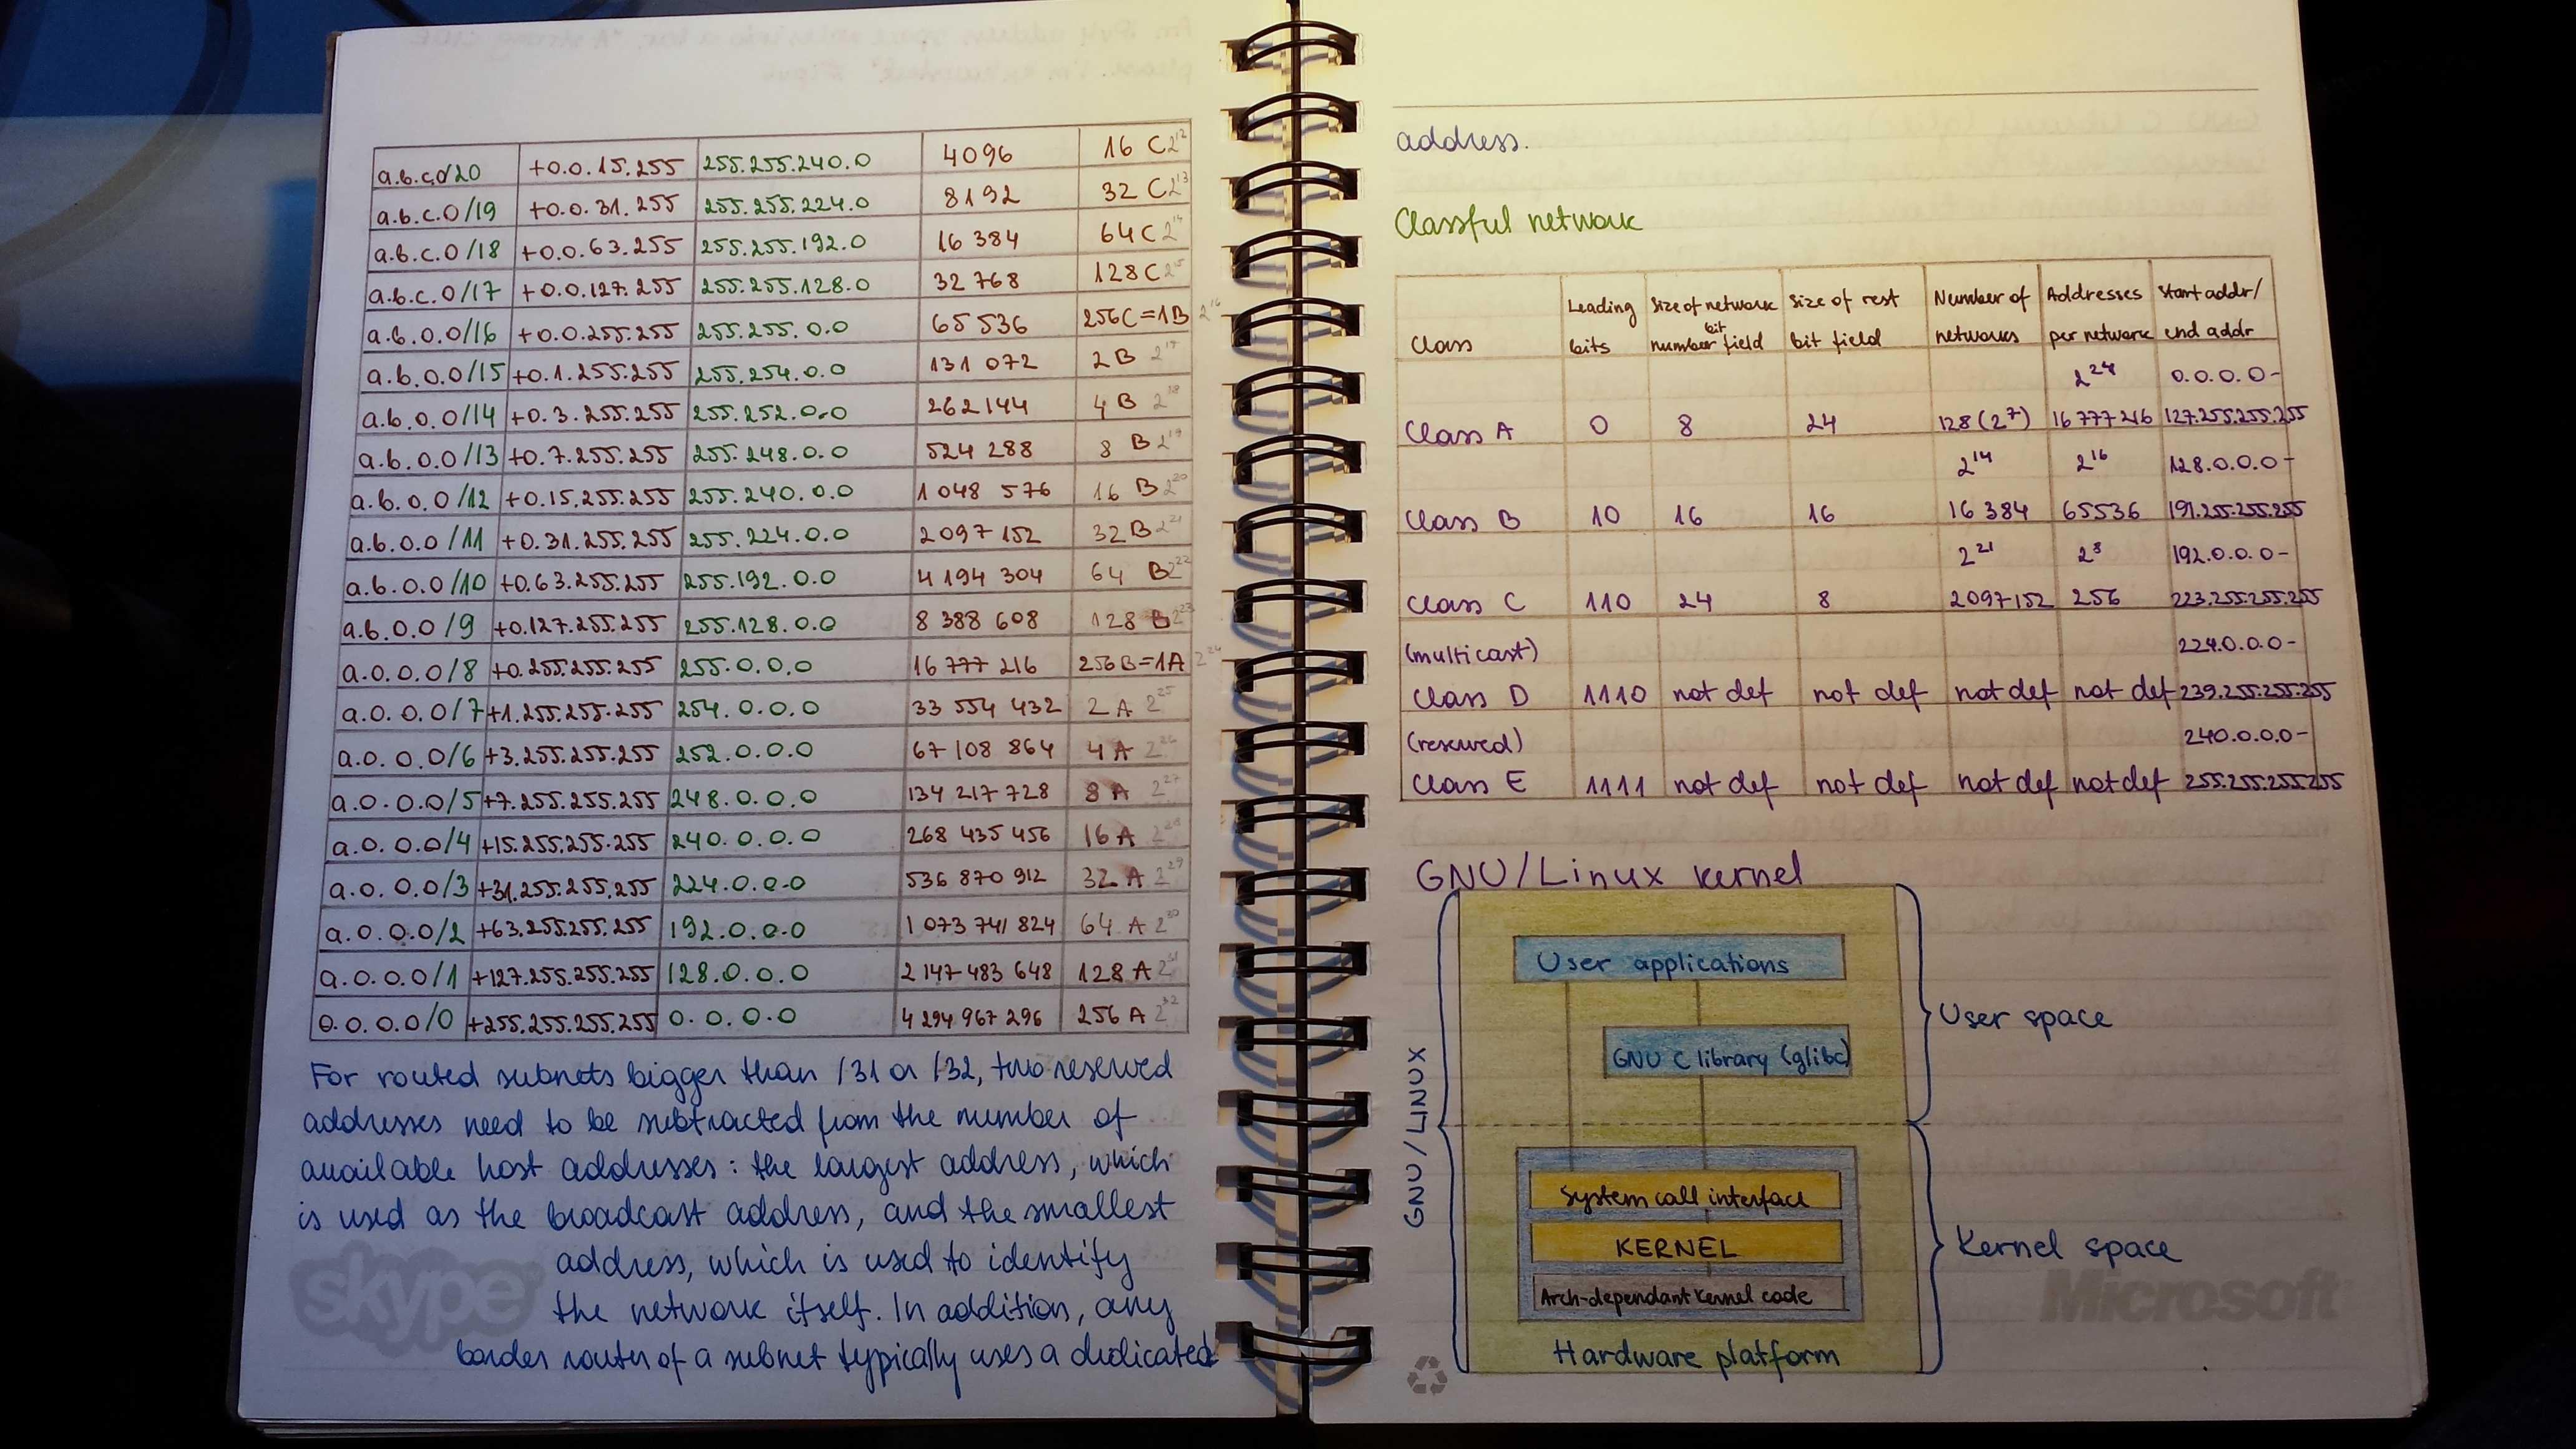 a.b.c.0/20 +0.0.15.255 255.255.240.0 4096 16 C 2^12
a.b.c.0/19 +0.0.31.255 255.255.224.0 8192 32 C 2^13
a.b.c.0/18 +0.0.63.255 255.255.192.0 16 384 64 C 2^14
a.b.c.0/17 +0.0.127.255 255.255.128.0 32 768 128 C 2^15
a.b.0.0/16 +0.0.255.255 255.255.0.0 65 536 256C=1B 2^16
a.b.0.0/15 +0.1.255.255 255.254.0.0 131 072 2 B 2^17
a.b.0.0/14 +0.3.255.255 255.252.0.0 262 144 4 B 2^18
a.b.0.0/13 +0.7.255.255 255.248.0.0 524 288 8 B 2^19
a.b.0.0/12 +0.15.255.255 255.240.0.0 1 048 576 16 B 2^20
a.b.0.0/11 +0.31.255.255 255.224.0.0 2 097 152 32 B 2^21
a.b.0.0/10 +0.63.255.255 255.192.0.0 4 194 304 64 B 2^22
a.b.0.0/9 +0.127.255.255 255.128.0.0 8 388 608 128 B 2^23
a.0.0.0/8 +0.255.255.255 255.0.0.0 16 777 216 256B=1A 2^24
a.0.0.0/7 +1.255.255.255 254.0.0.0 33 554 432 2 A 2^25
a.0.0.0/6 +3.255.255.255 252.0.0.0 67 108 864 4 A 2^26
a.0.0.0/5 +7.255.255.255 248.0.0.0 134 217 728 8 A 2^27
a.0.0.0/4 +15.255.255.255 240.0.0.0 268 435 456 16 A 2^28
a.0.0.0/3 +31.255.255.255 224.0.0.0 536 870 912 32 A 2^29
a.0.0.0/2 +63.255.255.255 192.0.0.0 1 073 741 824 64 A 2^30
a.0.0.0/1 +127.255.255.255 128.0.0.0 2 147 483 648 128 A 2^31
0.0.0.0/0 +255.255.255.255 0.0.0.0 4 294 967 296 256 A 2^32
For routed subnets bigger than /31 or /32, two reserved
addresses need to be subtracted from the number of
available host addresses: the largest address, which
is used as the broadcast address, and the smallest
address, which is used to identify
the network itself. In addition, any
border router of a subnet typically uses a dedicated
skype
address.
Classful network
Class Leading bits Size of network number bit field Size of rest bit field Number of networks Addresses per network Start addr/ end addr
2^24 0.0.0.0-
Class A 0 8 24 128 (2^7) 16 777 216 127.255.255.255
2^14 2^16 128.0.0.0-
Class B 10 16 16 16 384 65536 191.255.255.255
2^21 2^8 192.0.0.0-
Class C 110 24 8 2097152 256 223.255.255.255
(multicast) 224.0.0.0-
Class D 1110 not def not def not def not def 239.255.255.255
(reserved) 240.0.0.0-
Class E 1111 not def not def not def not def 255.255.255.255
GNU/Linux kernel
User applications
GNU C library (glibc)
User space
GNU/LINUX
System call interface
KERNEL
Arch-dependant kernel code
Kernel space
Hardware platform
Microsoft